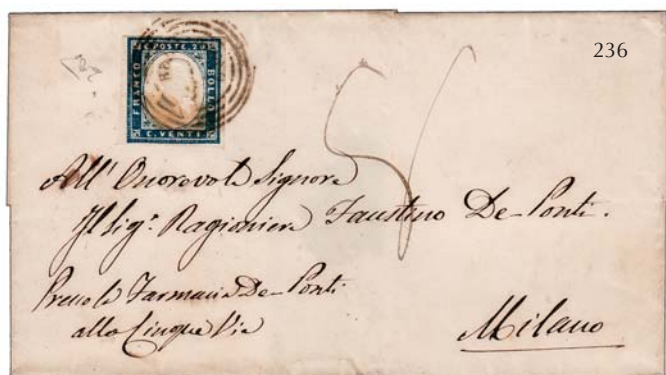 236
C. POSTE. 20
FRANCO
BOLLO
C. VENTI
All' Onorevole Signore
Il Sig.r Ragioniere Faustino De-Ponti.
Presso la Farmacia De-Ponti
alle Cinque Vie
Milano